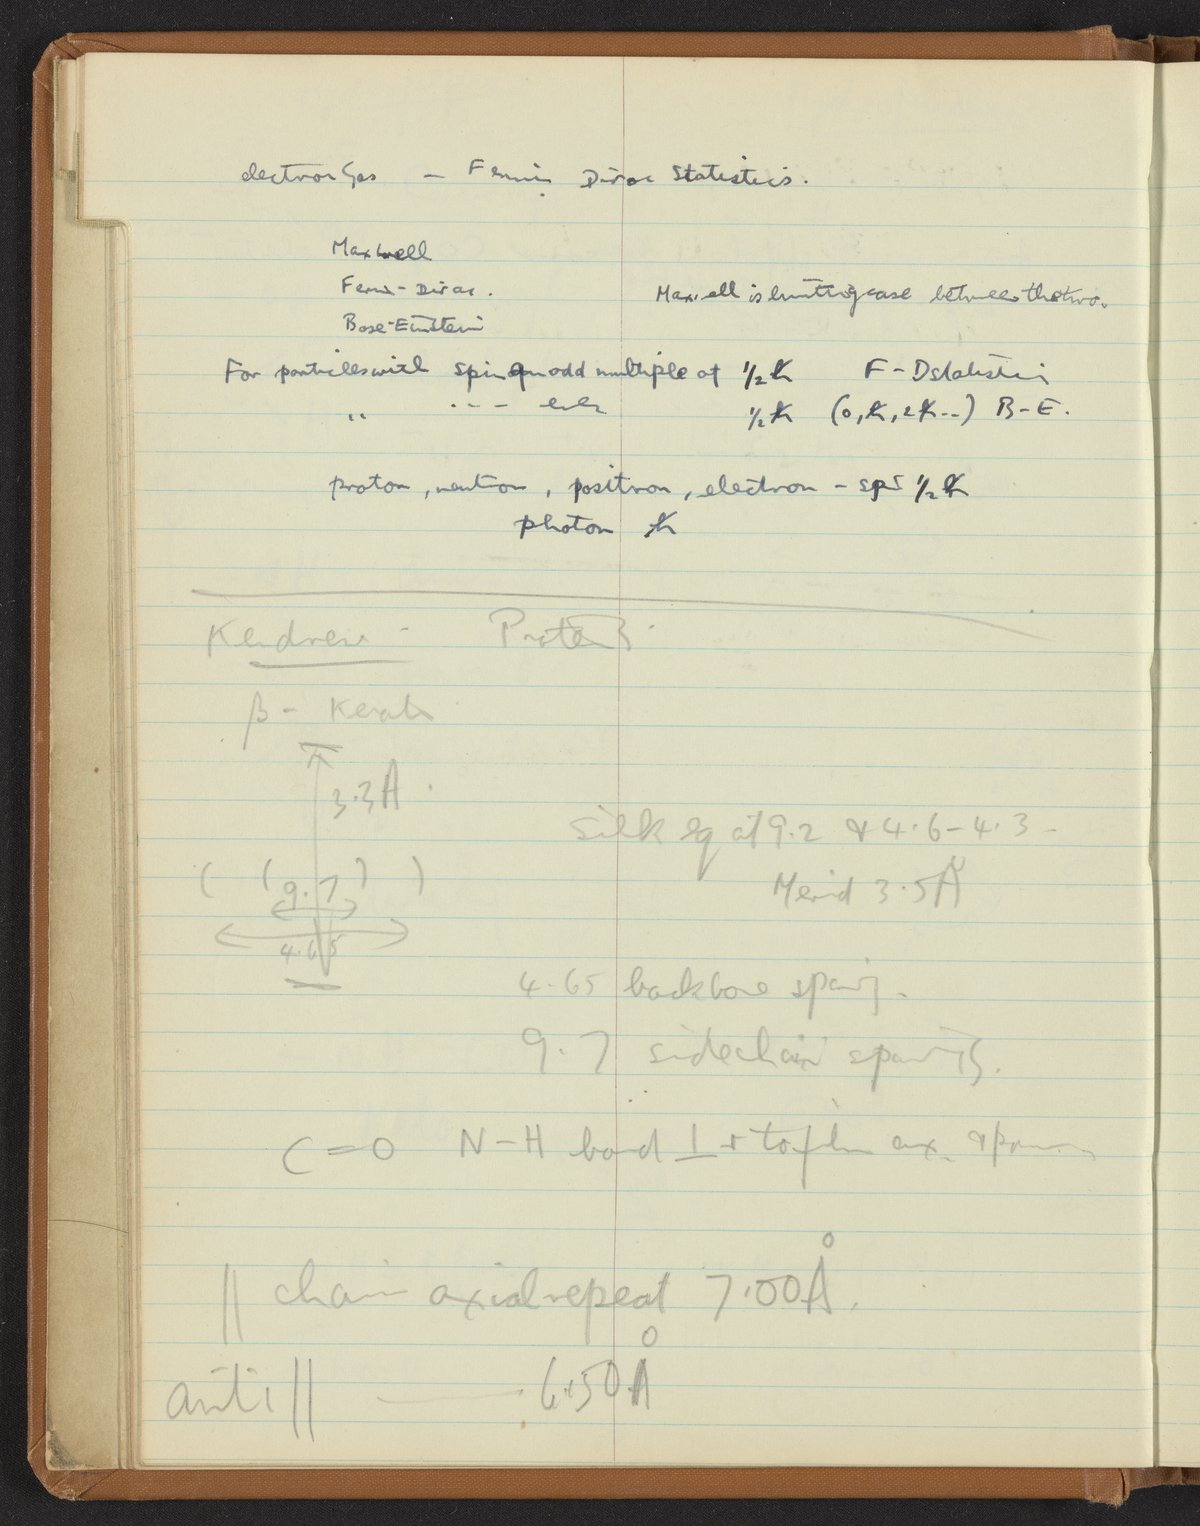 electron Gas – Fermi Dirac Statistics.
Maxwell
Fermi-Dirac.
Maxwell is limiting case between the two.
Bose-Einstein
For particles with spin an odd multiple of 1/2 ħ F-D statistics
" --- even 1/2 ħ (0, ħ, 2ħ--) B-E.
proton, neutron, positron, electron – spin 1/2 ħ
photon ħ
Kendrew - Proteins
β- Keratin
3.3Å
Silk eq at 9.2 & 4.6-4.3-
( ( 9.7 ) )
Merid 3.5Å
4.65
4.65 backbone spacing.
9.7 sidechain spacings.
C=O N-H bond ⊥r to
|| chain axial repeat 7.00Å.
anti || —— 6.50Å